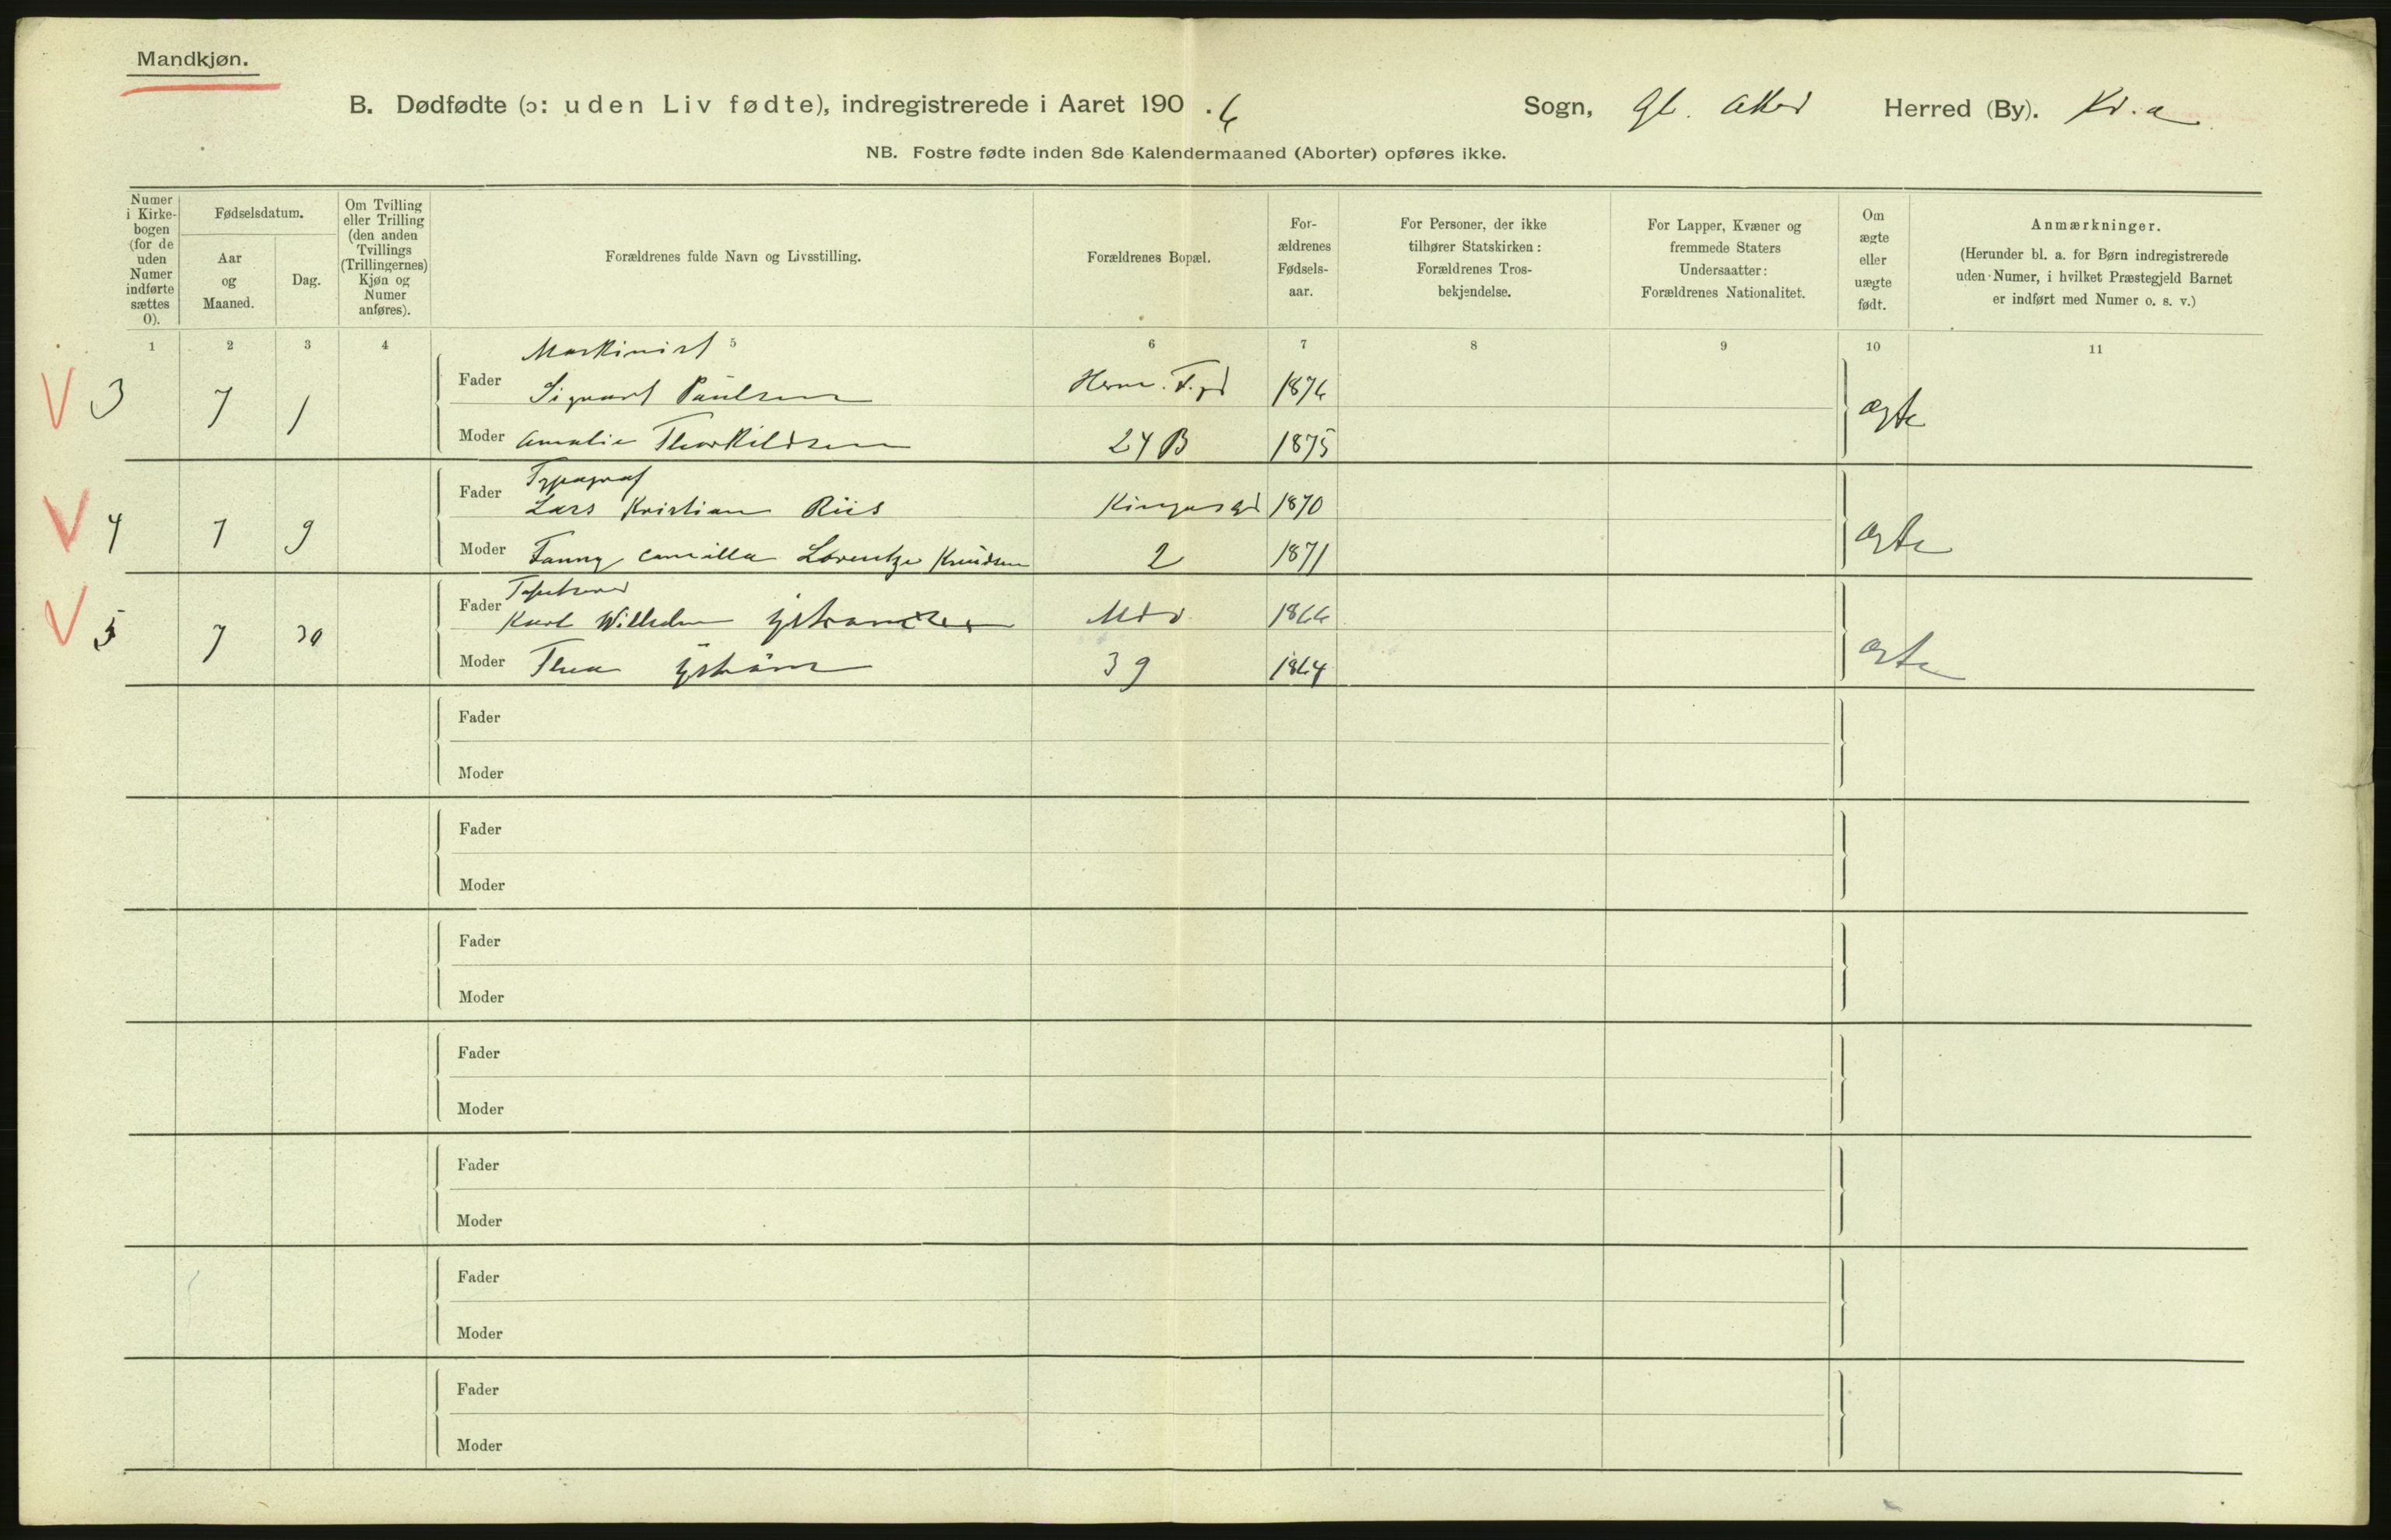 Mandkjøn.
B. Dødfødte (ɔ: uden Liv fødte), indregistrerede i Aaret 190.6 Sogn, Gl. Aker Herred (By). Kr.a
NB. Fostre fødte inden 8de Kalendermaaned (Aborter) opføres ikke.
Numer i Kirke-bogen (for de uden Numer indførte sættes 0).
Fødselsdatum.
Aar og Maaned.
Dag.
Om Tvilling eller Trilling (den anden Tvillings (Trillingernes) Kjøn og Numer anføres).
Forældrenes fulde Navn og Livsstilling.
Forældrenes Bopæl.
For-ældrenes Fødsels-aar.
For Personer, der ikke tilhører Statskirken: Forældrenes Tros-bekjendelse.
For Lapper, Kvæner og fremmede Staters Undersaatter: Forældrenes Nationalitet.
Om ægte eller uægte født.
Anmærkninger.
(Herunder bl. a. for Børn indregistrerede uden Numer, i hvilket Præstegjeld Barnet er indført med Numer o. s. v.)
1 2 3 4 5 6 7 8 9 10 11
Maskinist
V 3 7 1 Fader Sigvart Paulsen Herm. F. gd 1876 ægte
Moder Amalie Thorkildsen 24 B 1875
Typograf
V 4 7 9 Fader Lars Kristian Riis Kingosgd 1870 ægte
Moder Fanny Camilla Lorentze Knudsen 2 1871
Tapetserer
V 5 7 30 Fader Karl Wilhelm 1866 ægte
Moder Thea 39 1864
Fader
Moder
Fader
Moder
Fader
Moder
Fader
Moder
Fader
Moder
Fader
Moder
Fader
Moder